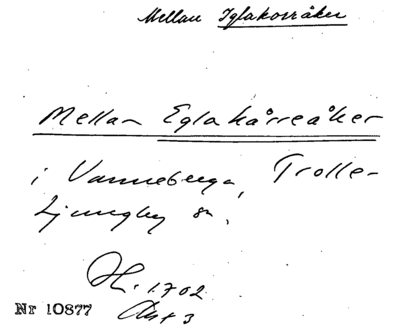 Mellan Iglakorråker
Mellan Eglakårreåker
i Vanneberga, Trolle-
Ljungby sn.
H. 1702
Akt 3
Nr 10877